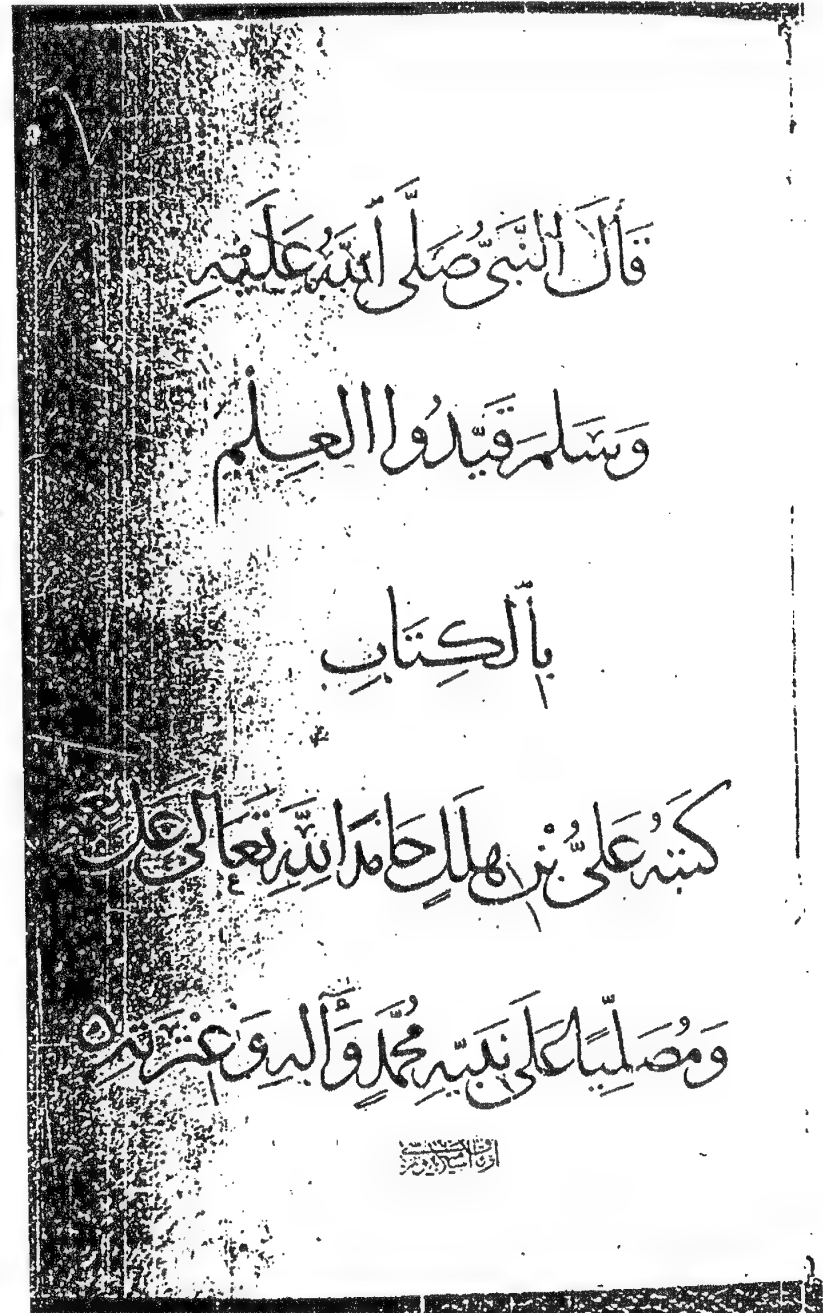 قَالَ ٱلنَّبِيُّ صَلَّى ٱللَّهُ عَلَيْهِ
وَسَلَّمَ قَيِّدُوا الْعِلْمَ
بِٱلْكِتَابِ
كَتَبَهُ عَلِيُّ بْنُ هِلَلٍ حَامِدًا لِلَّهِ تَعَالَى عَلَى نِعَمِهِ
وَمُصَلِّيًا عَلَى نَبِيِّهِ مُحَمَّدٍ وَآلِهِ وَعِتْرَتِهِ